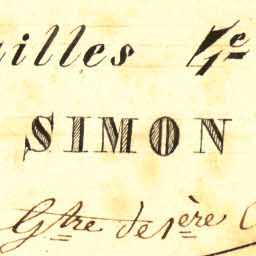 illes 4e
SIMON
Gtre de 1ère